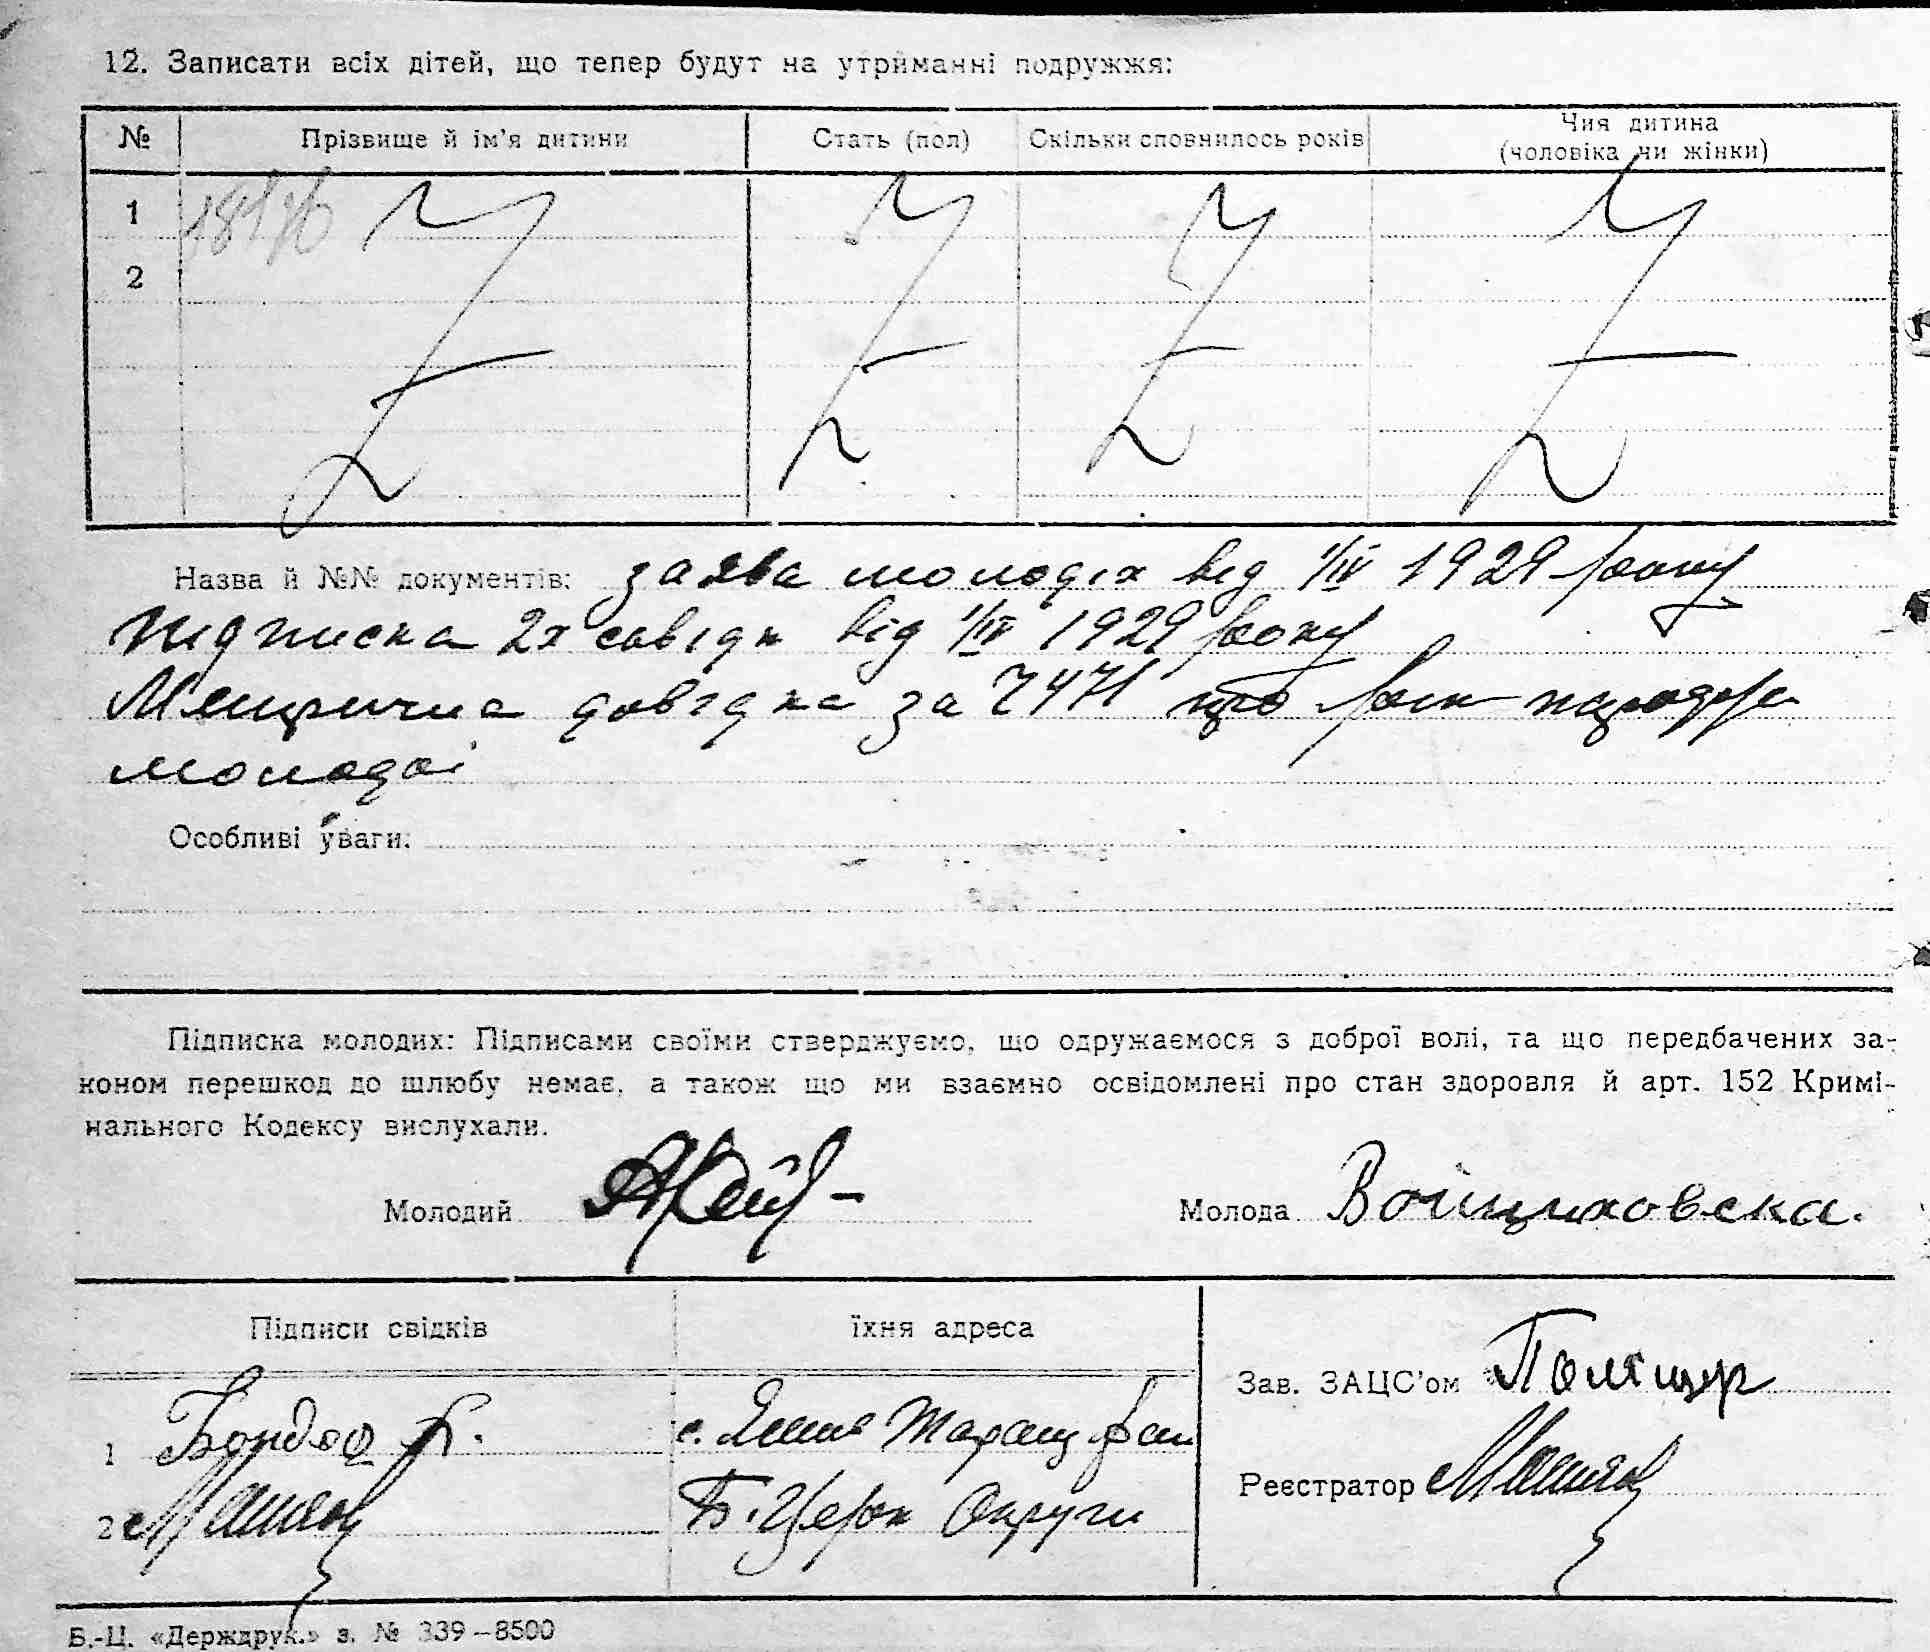 12. Записати всіх дітей, що тепер будут на утриманні подружжя:
№ Прізвище й ім'я дитини Стать (пол) Скільки сповнилось років Чия дитина (чоловіка чи жінки)
1
2
Назва й №№ документів: заява молодіх від 1/IV 1929 року
підписка 2х свідк від 1/IV 1929 року
Метрична довідка за 7471 про рік народж
молодоі
Особливі уваги:
Підписка молодих: Підписами своїми стверджуємо, що одружаємося з доброї волі, та що передбачених за-
коном перешкод до шлюбу немає, а також що ми взаємно освідомлені про стан здоровля й арт. 152 Кримі-
нального Кодексу вислухали.
Молодий Молода Войциховска.
Підписи свідків їхня адреса
Зав. ЗАЦС'ом
1 Бондар с. Таращ рай
Реєстратор
2 Б.Церк Округи
Б.-Ц. «Держдрук.» з. № 339—8500